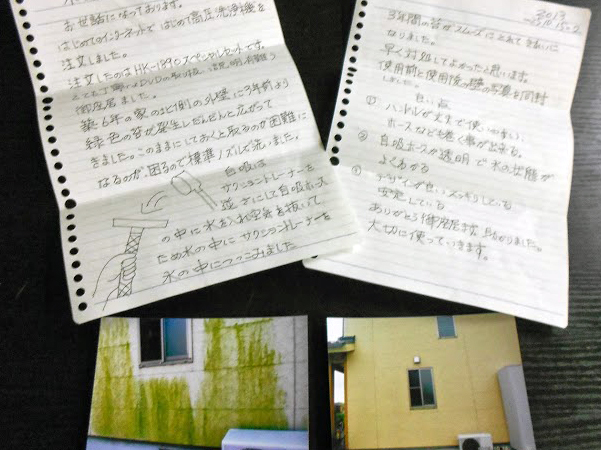 お世話になっております。
はじめてのインターネットで はじめて高圧洗浄機を
注文しました。
注文したのは HK-1890 スペシャルセットです。
とても丁寧 DVDの取り扱い説明有難う
御座居ました。
築6年の家の北側の外壁に3年前より
緑色の苔が発生しだんだんと広がって
きました。このままにしておくと取るのが困難に
なるのが、困るので標準ノズルで洗いました。
自吸は
サクションストレーナーを
逆さにして自吸ホース
の中に水を入れ空気を抜いて
ため水の中にサクションストレーナーを
水の中につっこみました
2013
3年間の苔がスムーズにとれてきれいに
なりました。
早く対処してよかったと思います。
使用前と使用後の壁の写真を同封
しました。
良い点
① ハンドルが丈夫で使いやすい
ホースなども巻く事が出来る。
② 自吸ホースが透明で水の状態が
よくわかる
③ デザインが良いスッキリしている
安定している
ありがとう御座居ます 助かりました。
大切に使っていきます。